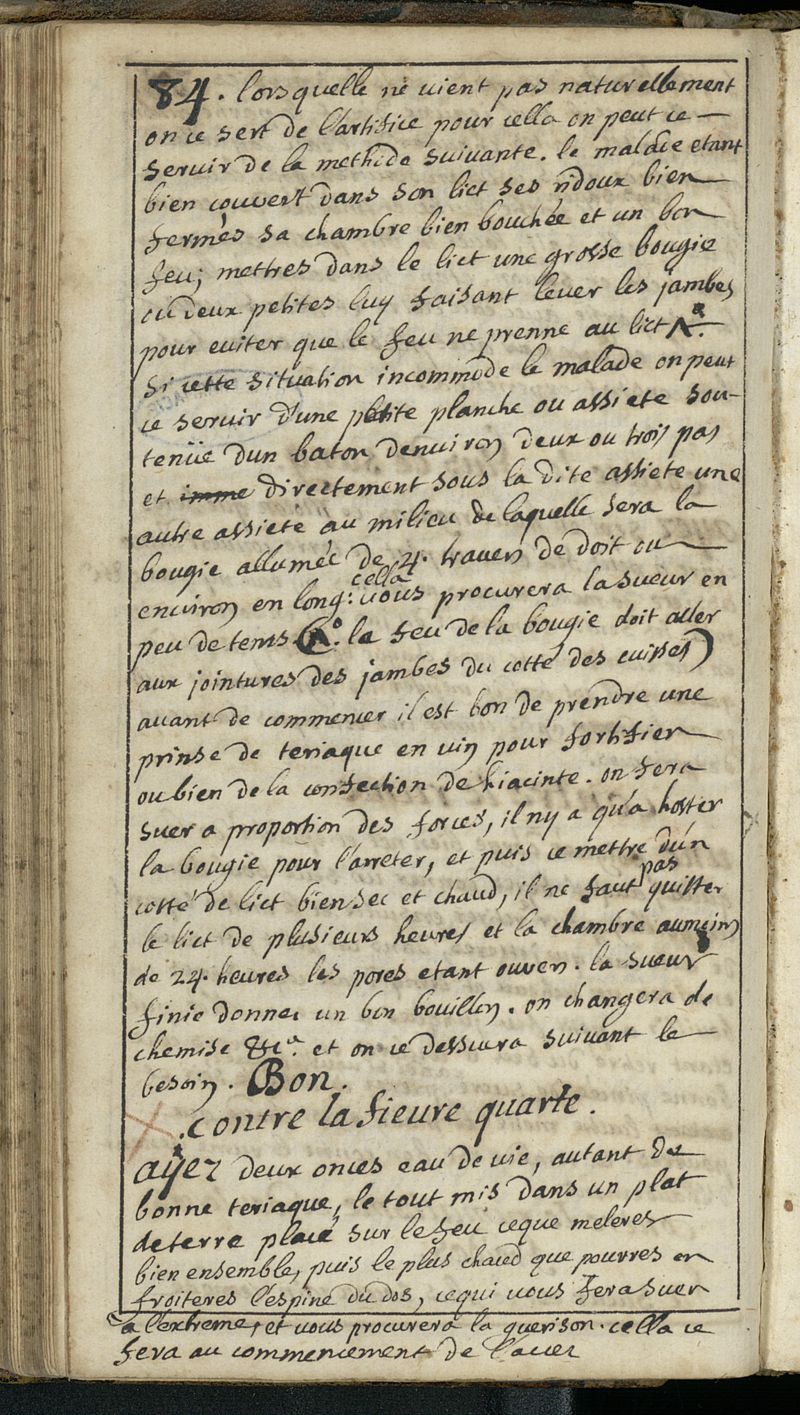 84. lorsquelle ne vient pas naturellement
on ce sert de l'artifice pour cella on peut ce
servir de la methode suivante. le malade etant
bien couvert dans son lict ses ridoux bien
fermés sa chambre bien bouchée et un bon
feu; mettres dans le lict une grosse bougie
ou deux petites luy faisant lever les jambes
pour eviter que le feu ne prenne au lict Nª
si cette situation incommode le malade on peut
ce servir d'une petite planche ou assiete sou-
tenüe dun baton denviron deux ou trois pas
et directement sous la dite assiete une
autre assiete au milieu de laquelle sera la
bougie allumée de 4. travers de doit ou
environ en long: cella vous procurera la sueur en
peu de tems. (Nº. le feu de la bougie doit aller
aux jointures des jambes du cotte des cuisses)
avant de commencer il est bon de prendre une
prinse de teriaque en vin pour fortifier
ou bien de la confection de hiacinte. on fera
suer a proportion des forces, il ny a qu'a hoster
la bougie pour l'arreter, et puis ce mettre dún
cotté de lict bien sec et chaud, il ne faut pas quitter
le lict de plusieurs heures et la chambre aumoins
de 24. heures les pores etant ouvers. la sueur
finie donnes un bon bouillon. on changera de
chemise &cª. et on ce dessuera suivant le
besoin. Bon.
contre la fievre quarte.
ayez deux onces eau de vie, autant de
bonne teriaque, le tout mis dans un plat
de terre placé sur le feu ceque meleres
bien ensemble, puis le plus chaud que pourres en
froiteres l'espine du dos, cequi vous fera suer
a l'extreme, et vous procurera la guerison. cella ce
fera au commencement de l'accez